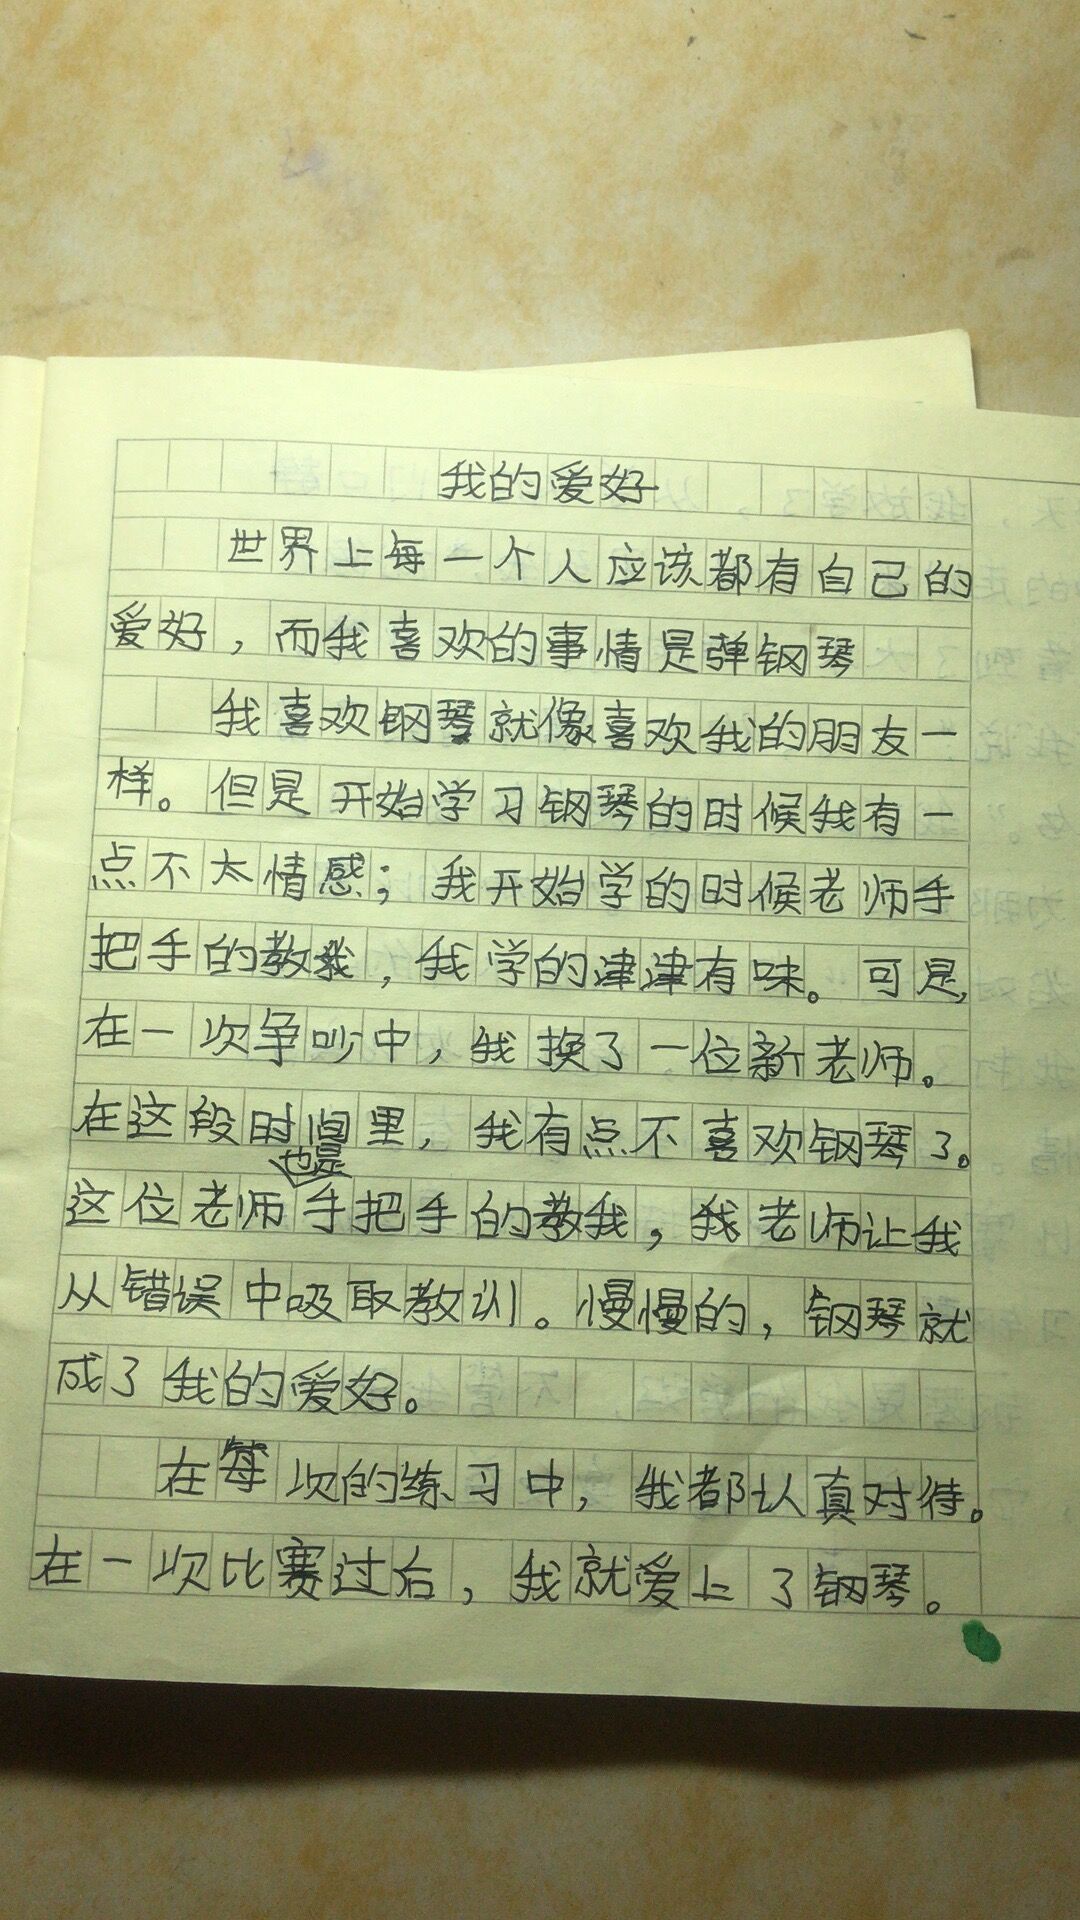 我的爱好
世界上每一个人应该都有自己的
爱好，而我喜欢的事情是弹钢琴
我喜欢钢琴就像喜欢我的朋友一
样。但是开始学习钢琴的时候我有一
点不太情感；我开始学的时候老师手
把手的教我，我学的津津有味。可是，
在一次争吵中，我换了一位新老师。
在这段时间里，我有点不喜欢钢琴了。
这位老师也是手把手的教我，我老师让我
从错误中吸取教训。慢慢的，钢琴就
成了我的爱好。
在每次的练习中，我都认真对待。
在一次比赛过后，我就爱上了钢琴。